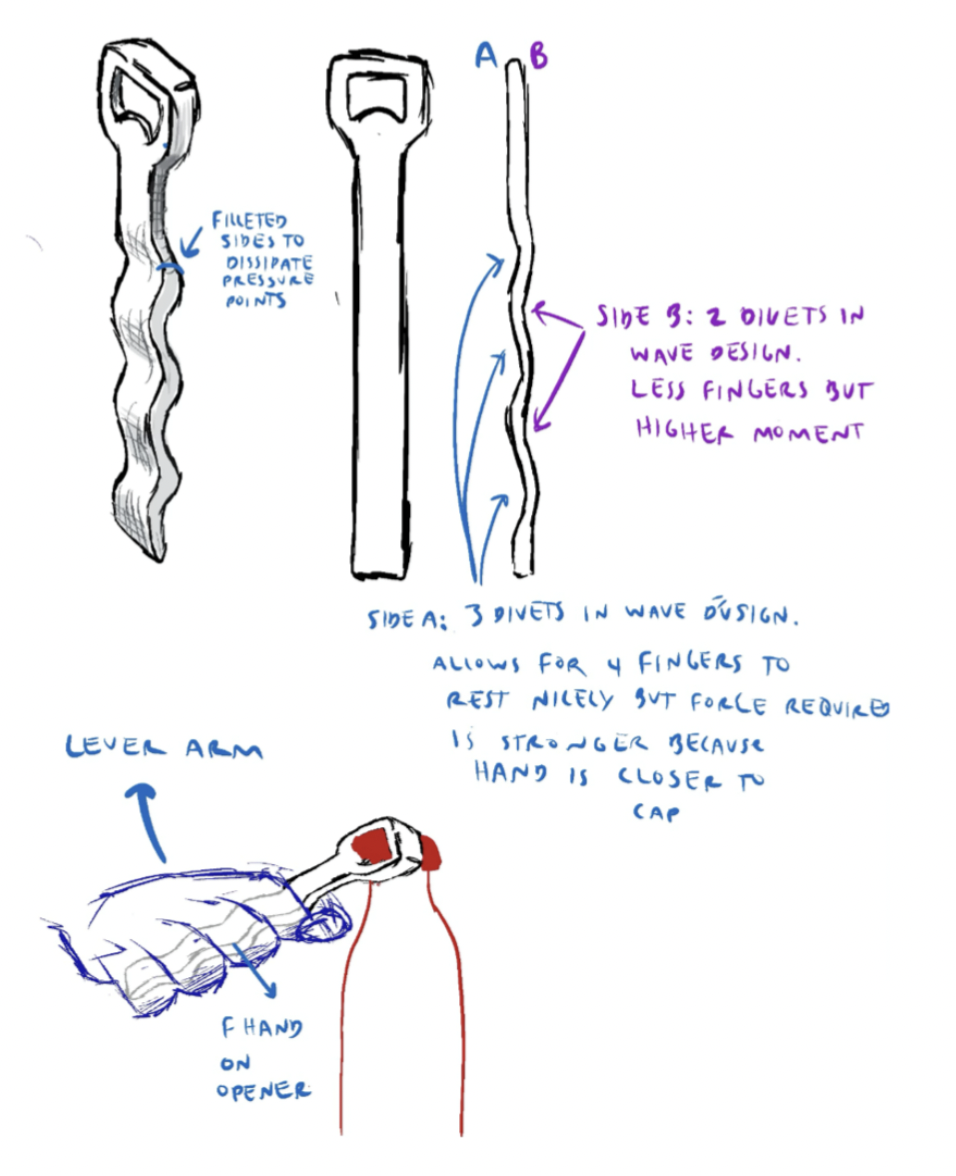 A B
FILLETED
SIDES TO
DISSIPATE
PRESSURE
POINTS
SIDE B: 2 DIVETS IN
WAVE DESIGN.
LESS FINGERS BUT
HIGHER MOMENT
SIDE A: 3 DIVETS IN WAVE DESIGN.
ALLOWS FOR 4 FINGERS TO
REST NICELY BUT FORCE REQUIRED
IS STRONGER BECAUSE
HAND IS CLOSER TO
CAP
LEVER ARM
F HAND
ON
OPENER